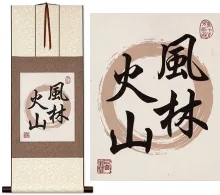 風林
火山
風林
火山